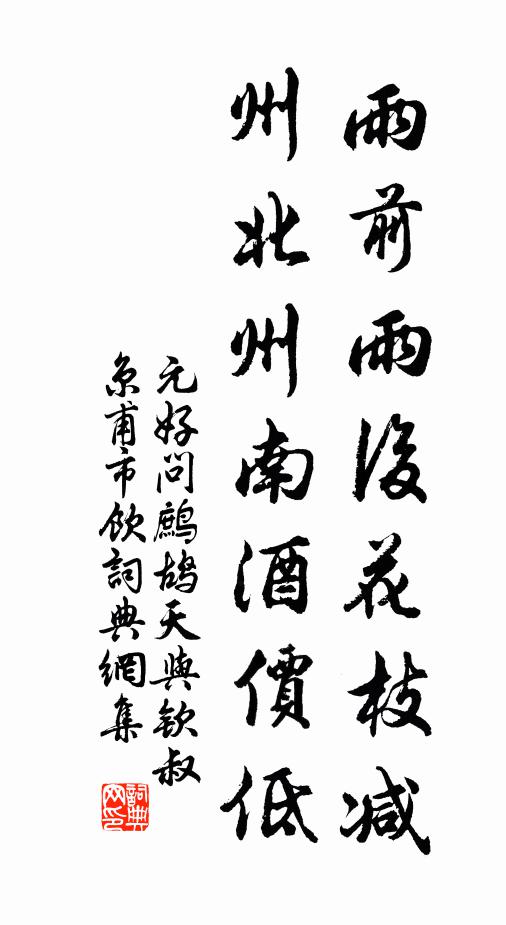 雨前雨後花枝减
州北州南酒價低
元好问鷓鴣天與欽叔
京甫市飲詞典網集
詞典网印